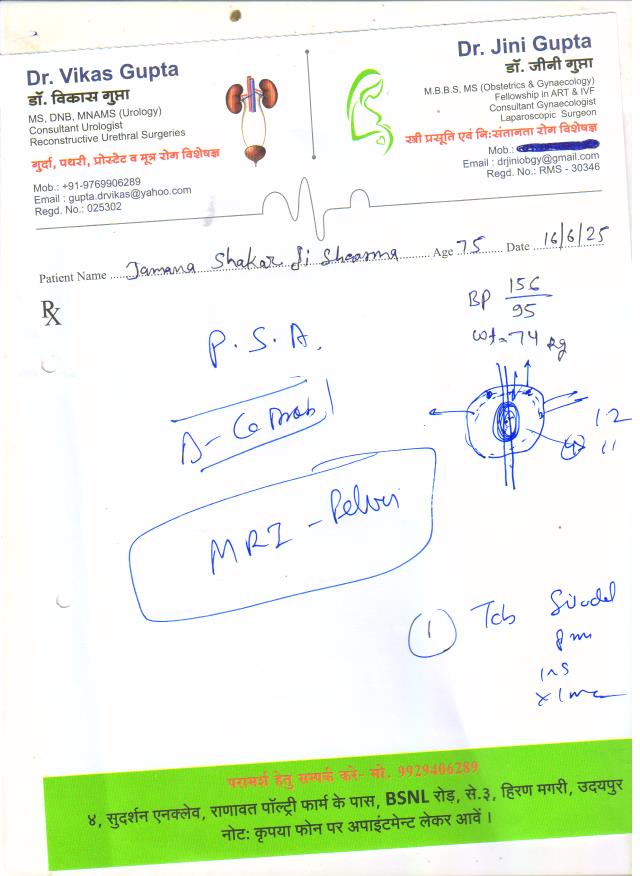 Dr. Vikas Gupta
डॉ. विकास गुप्ता
MS, DNB, MNAMS (Urology)
Consultant Urologist
Reconstructive Urethral Surgeries
गुर्दा, पथरी, प्रोस्टेट व मूत्र रोग विशेषज्ञ
Mob.: +91-9769906289
Email : gupta.drvikas@yahoo.com
Regd. No.: 025302
Dr. Jini Gupta
डॉ. जीनी गुप्ता
M.B.B.S. MS (Obstetrics & Gynaecology)
Fellowship in ART & IVF
Consultant Gynaecologist
Laparoscopic Surgeon
स्त्री प्रसूति एवं निःसंतानता रोग विशेषज्ञ
Mob.:
Email : drjiniobgy@gmail.com
Regd. No.: RMS - 30346
Patient Name Jamana Shakar Ji Shearma Age 75 Date 16/6/25
Rx
BP 156
95
wt- 74 kg
P.S.A.
MRI - Pelvis
12
11
1 Tab
परामर्श हेतु सम्पर्क करें- मो. 9929406289
४, सुदर्शन एनक्लेव, राणावत पॉल्ट्री फार्म के पास, BSNL रोड़, से.३, हिरण मगरी, उदयपुर
नोट: कृपया फोन पर अपाइंटमेन्ट लेकर आवें ।